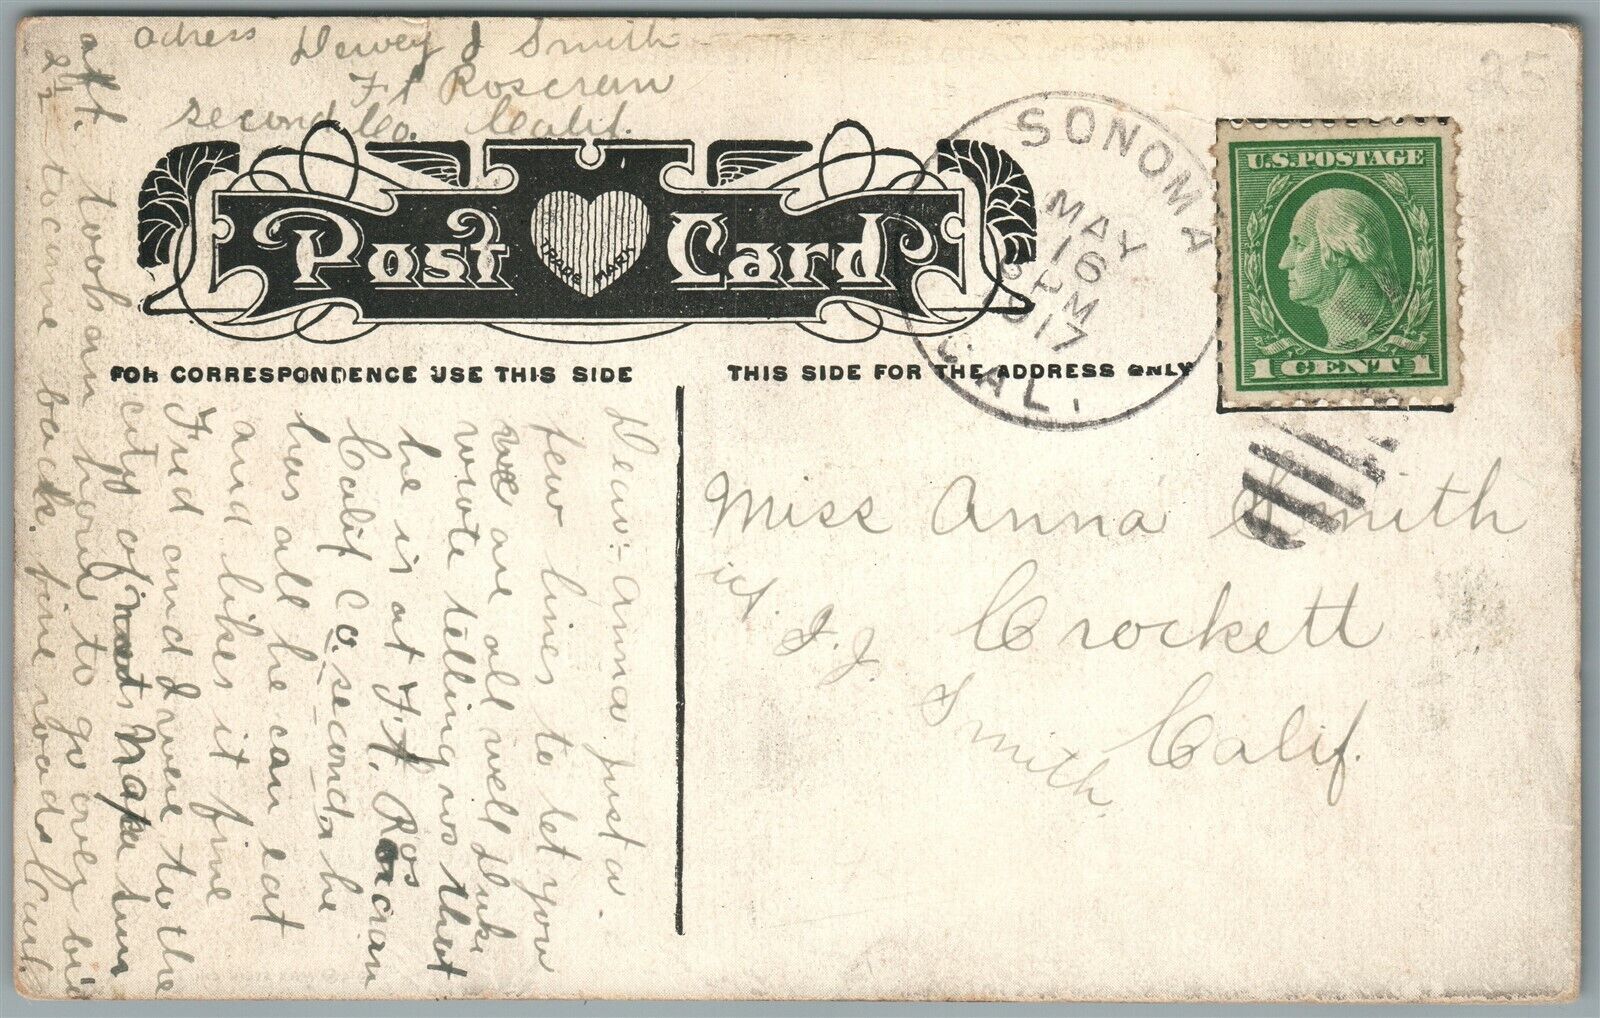 adress Dewey J Smith
Ft Roscran
second Co. Calif.
25
SONOMA
MAY
16
PM
1917
CAL.
U.S. POSTAGE
1 CENT 1
Post Card
TRADE MARK
FOR CORRESPONDENCE USE THIS SIDE
THIS SIDE FOR THE ADDRESS ONLY
Dear:- Anna just a
few lines to let you
we are all well Duke
wrote telling us that
he is at Ft. Roscran
Calif Co. second he
has all he can eat
and likes it fine
Fred and I were to the
city of Napa Sun
aft. took an hour to go over
2 1/2 to come back. fine roads
Miss Anna Smith
Crockett
Calif.
I. J.
Smith